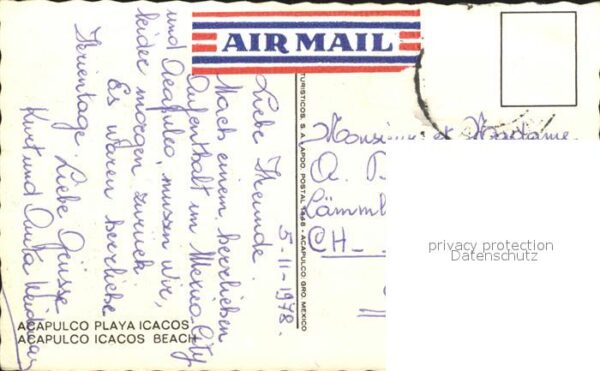 AIR MAIL
5-11-1978.
Liebe Freunde.
Nach einem herrlichen
Aufenthalt in Mexico-City
und Acapulco, müssen wir,
leider morgen zurück
Es waren herrliche
Ferientage. Liebe Grüsse
Kurt und Anita
TURISTICOS, S.A. APDO. POSTAL 1448 - ACAPULCO GRO. MEXICO
Monsieur et Madame
A.
CH-
privacy protection
Datenschutz
ACAPULCO PLAYA ICACOS
ACAPULCO ICACOS BEACH